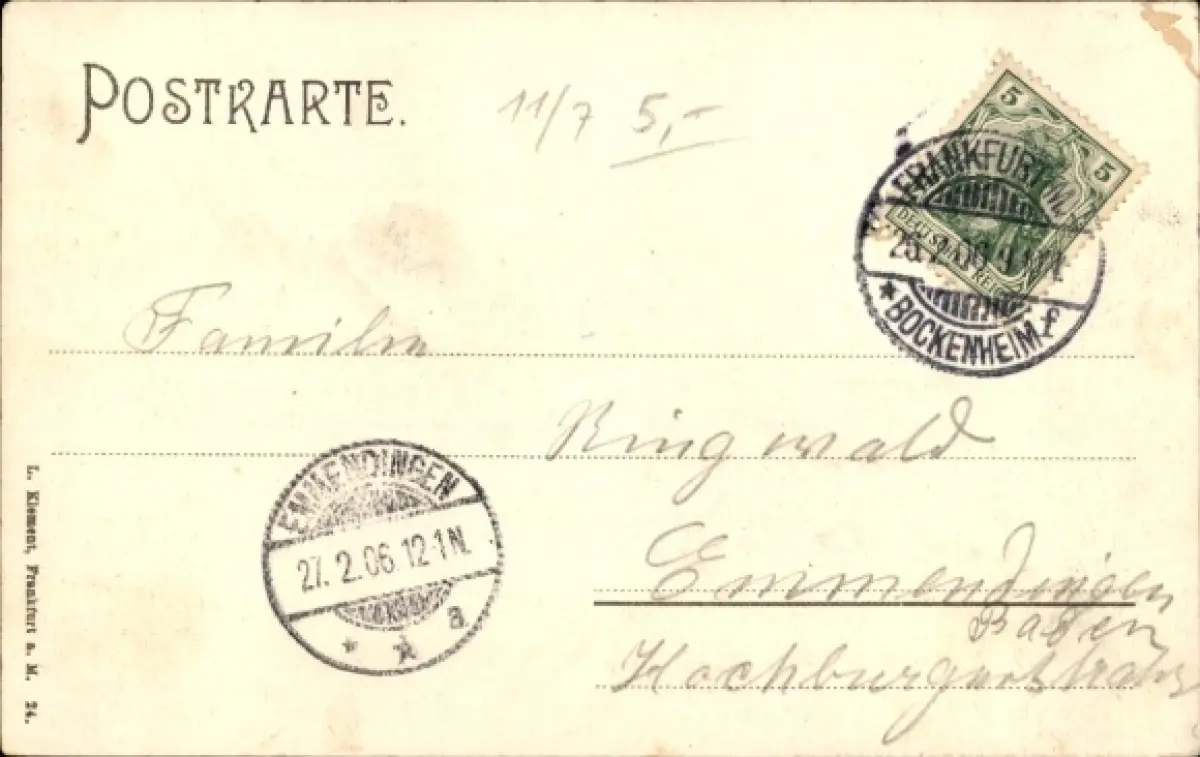 POSTKARTE.
11/7 5,-
5 5
DEUTSCHES REICH
FRANKFURT
2.06
* BOCKENHEIM.
Familie
Ringwald
Emmendingen
Baden
Hochburgerstrasse
EMMENDINGEN
27. 2. 06. 12-1 N.
* * a
L. Klement, Frankfurt a. M. 24.